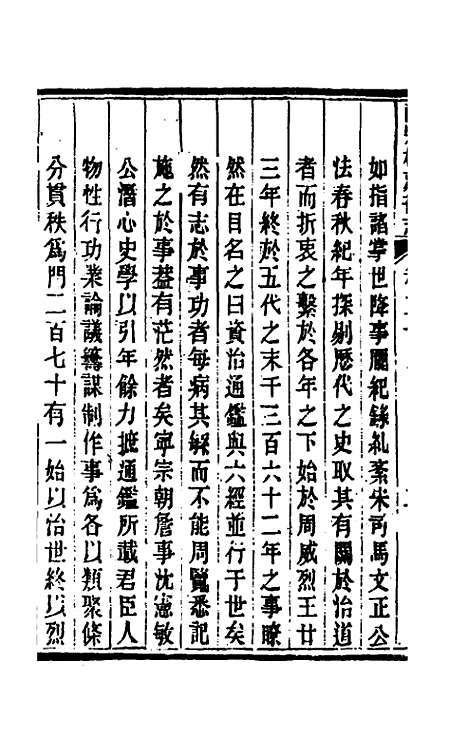 如指諸掌世降事關紀錄糺紊宋司馬文正公
法春秋紀年探剔歷代之史取其有關於治道
者而折衷之繫於各年之下始於周威烈王廿
三年終於五代之末千三百六十二年之事瞭
然在目名之曰資治通鑑與六經並行于世矣
然有志於事功者每病其繇而不能周覽悉記
施之於事葢有茫然者矣寧宗朝詹事沈憲敏
公潛心史學以引年餘力摭通鑑所載君臣人
物性行功業論議籌謀制作事爲各以類聚條
分貫秩爲門二百七十有一始以治世終以烈